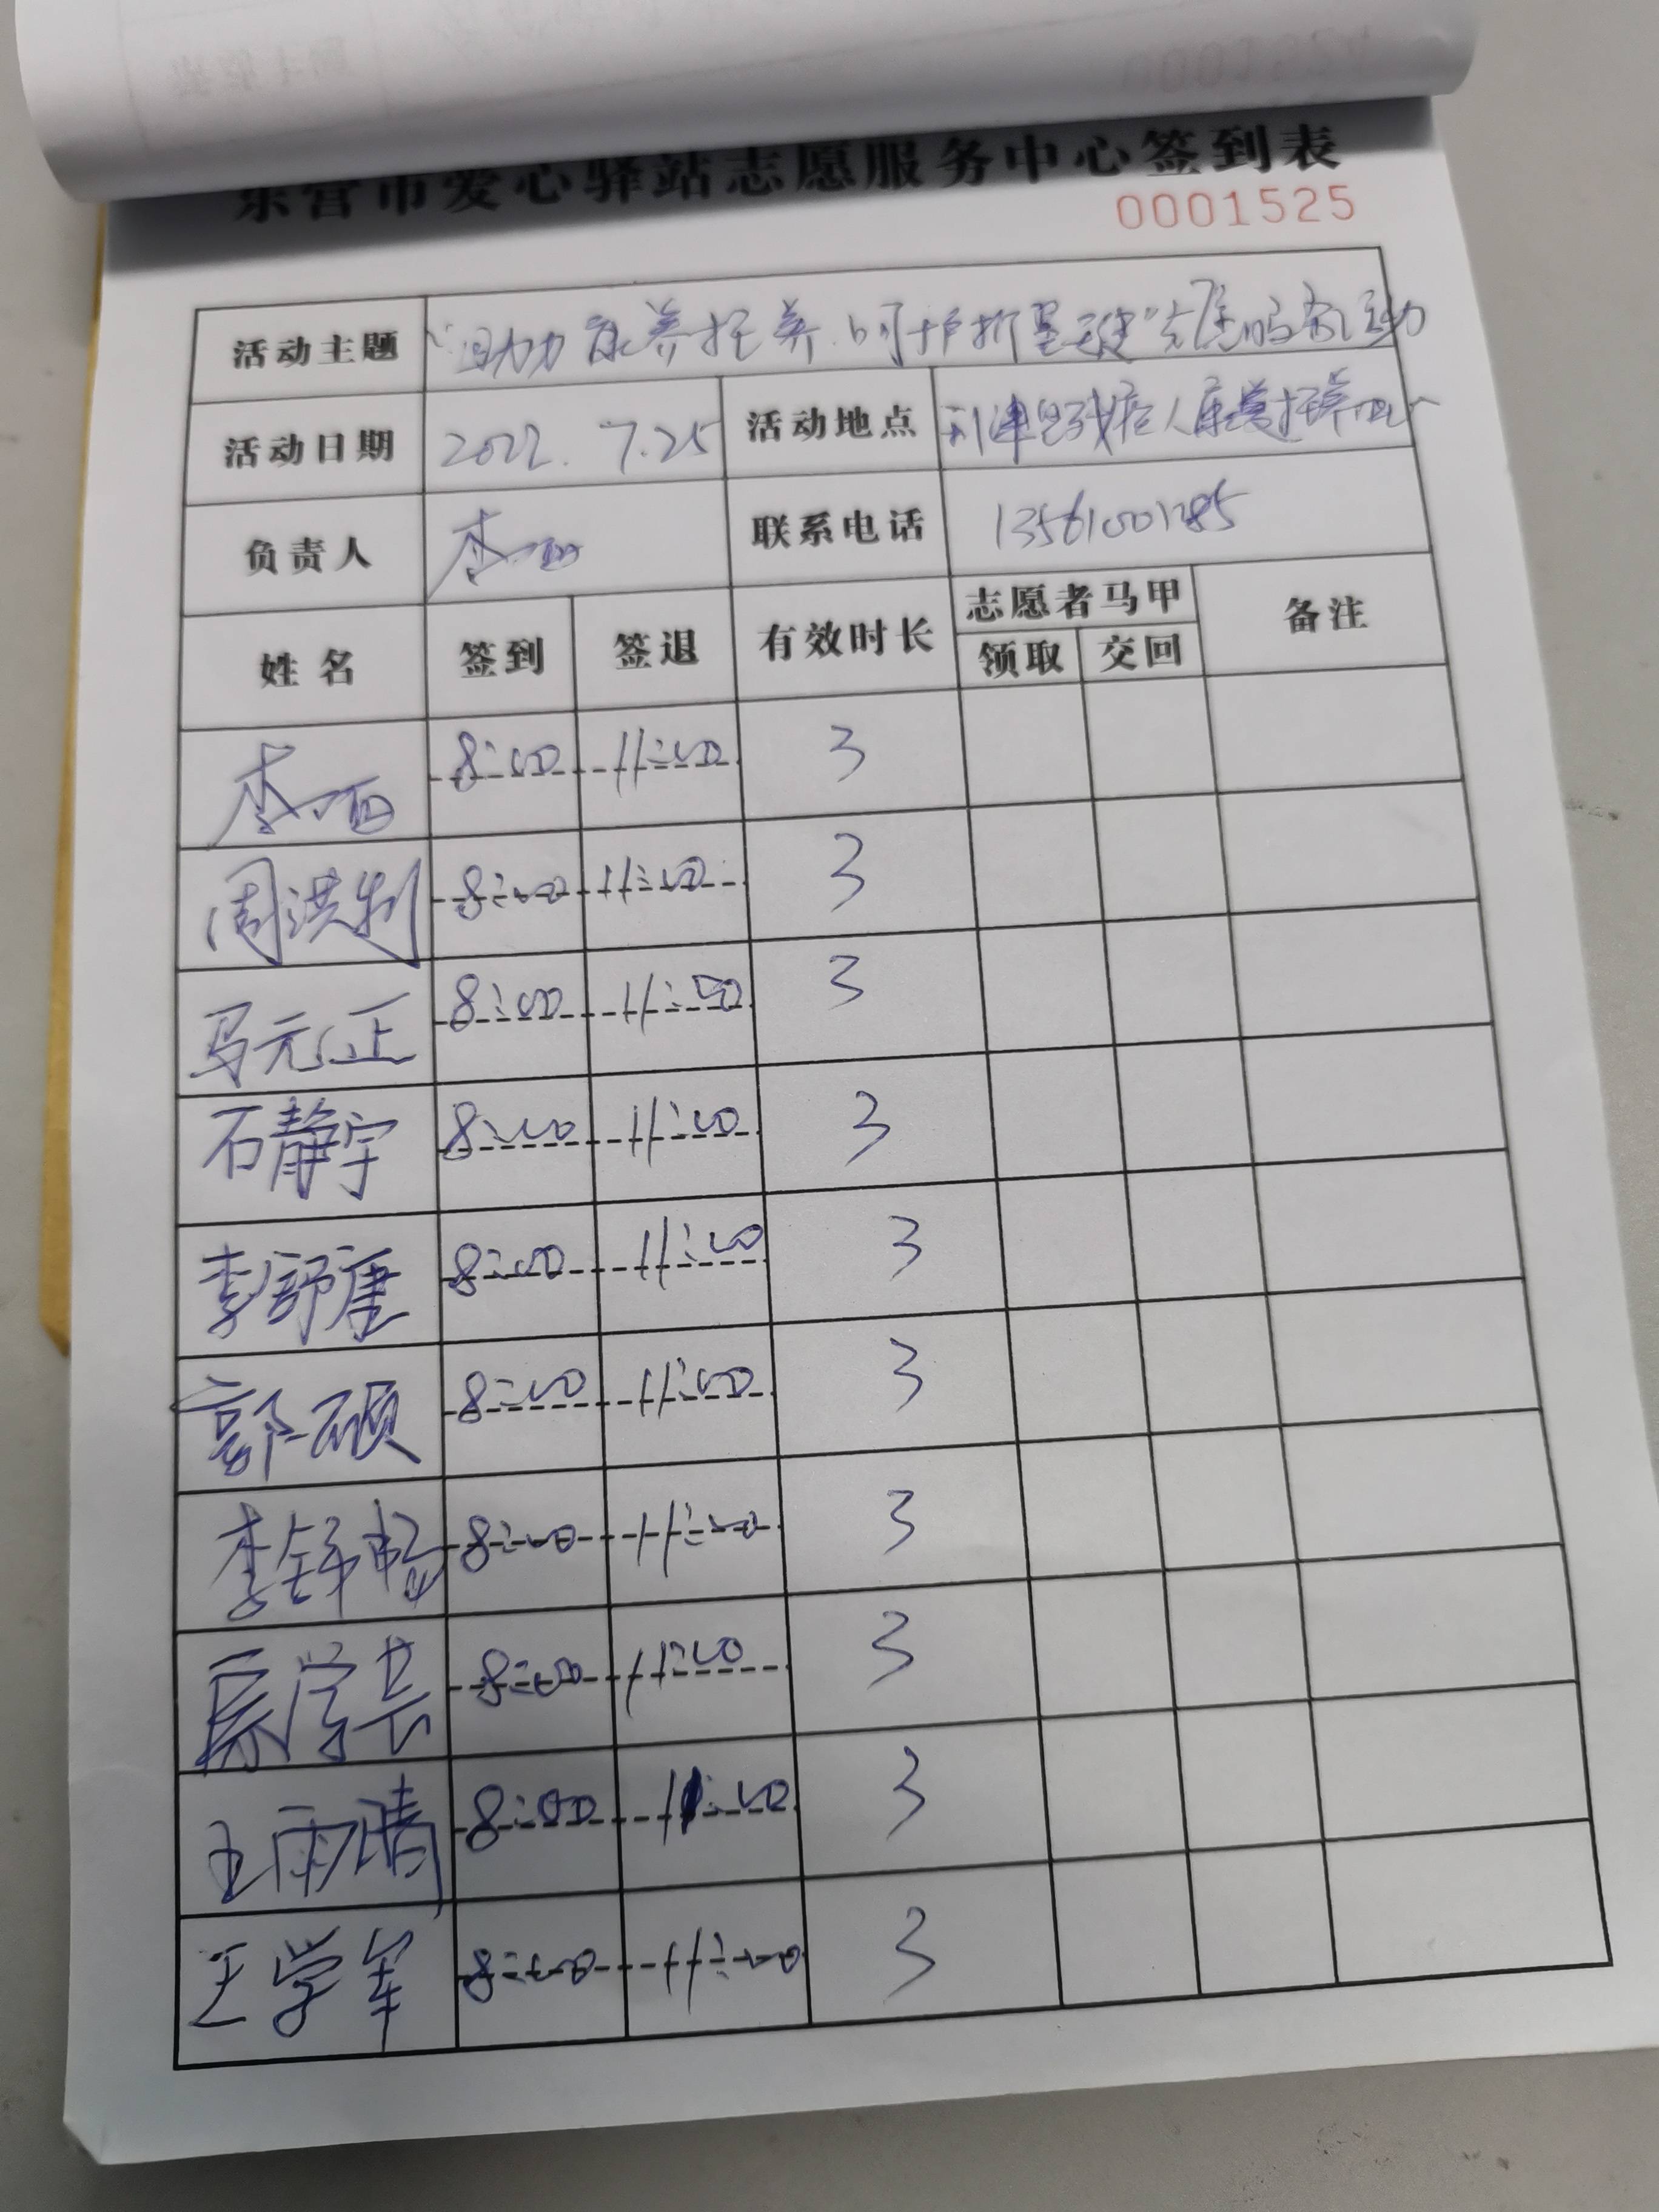 东营市爱心驿站志愿服务中心签到表
0001525
活动主题 "助力康养托养.呵护折翼天使"志愿服务活动
活动日期 2022.7.25 活动地点 利津县残疾人康养托养中心
负责人 李 联系电话 13561001785
姓名 签到 签退 有效时长 志愿者马甲 备注
领取 交回
李 8:00 11:00 3
周洪利 8:00 11:00 3
马元正 8:00 11:00 3
石静宇 8:00 11:00 3
李舒康 8:00 11:00 3
郭硕 8:00 11:00 3
李舒畅 8:00 11:00 3
扈学长 8:00 11:00 3
王雨晴 8:00 11:00 3
王学军 8:00 11:00 3